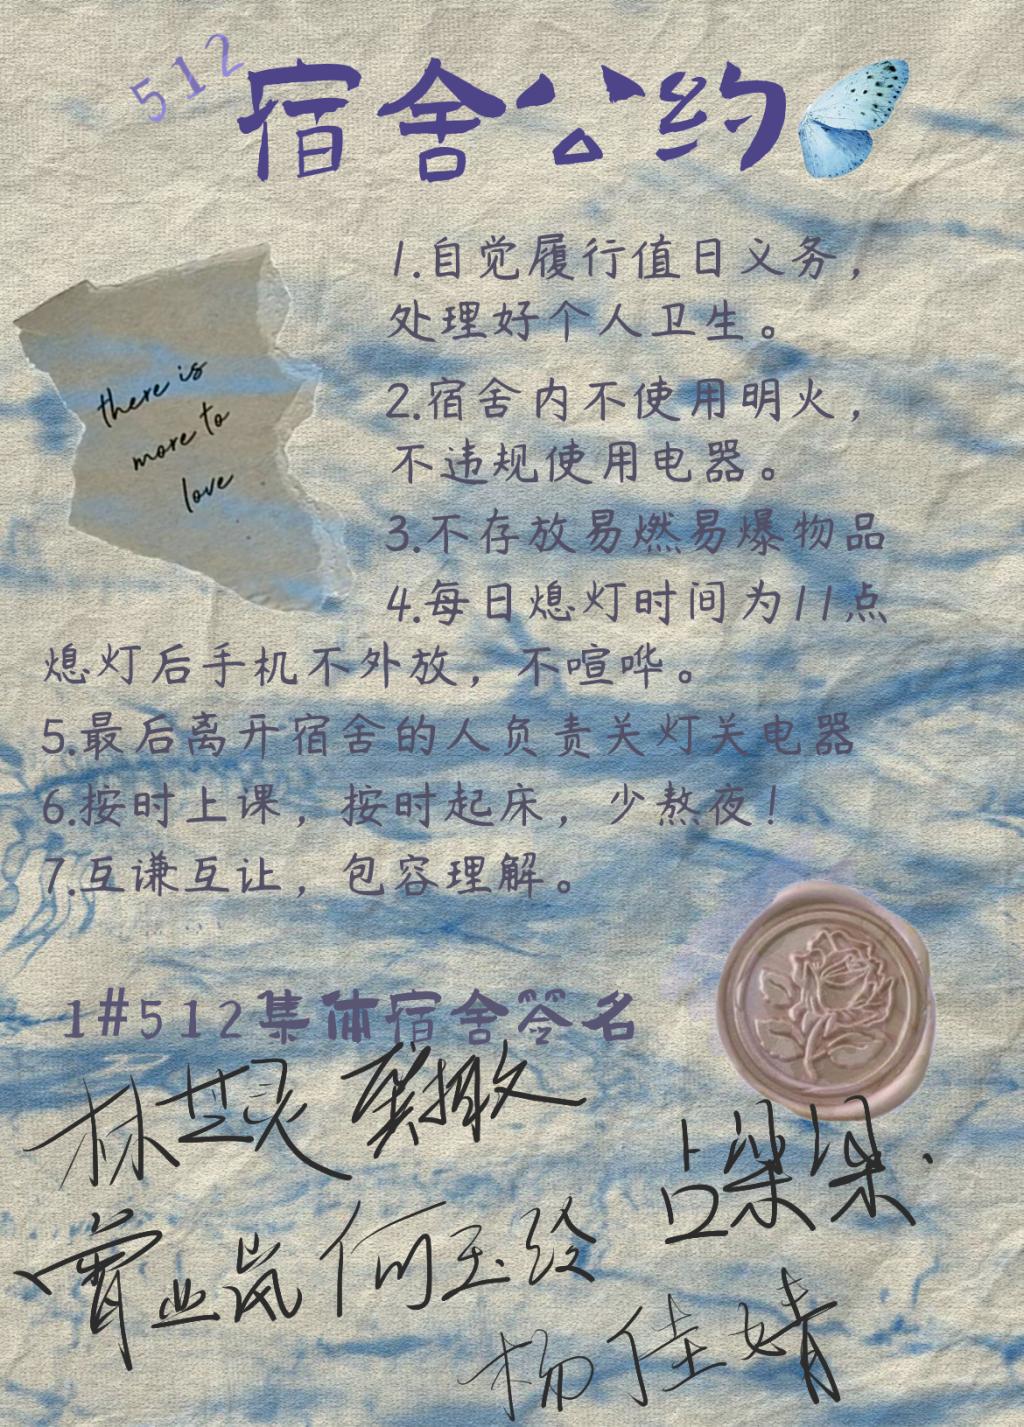 512
宿舍公约
1.自觉履行值日义务，
处理好个人卫生。
there is
more to
love
2.宿舍内不使用明火，
不违规使用电器。
3.不存放易燃易爆物品
4.每日熄灯时间为11点
熄灯后手机不外放，不喧哗。
5.最后离开宿舍的人负责关灯关电器
6.按时上课，按时起床，少熬夜！
7.互谦互让，包容理解。
1#512集体宿舍签名
林芷灵
何玉玲
杨佳婧